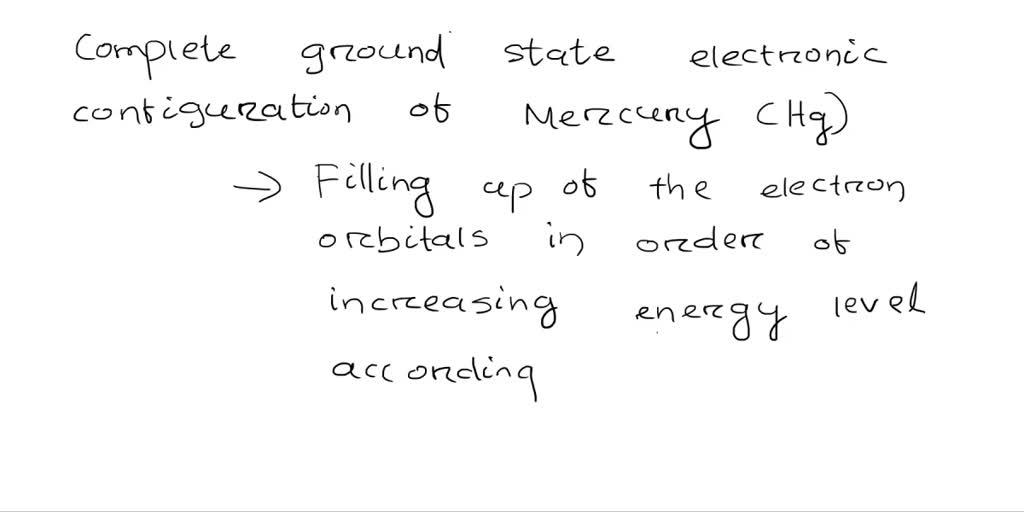 Complete ground state electronic
configuration of Mercury (Hg)
→ Filling up of the electron
orbitals in order of
increasing energy level
according